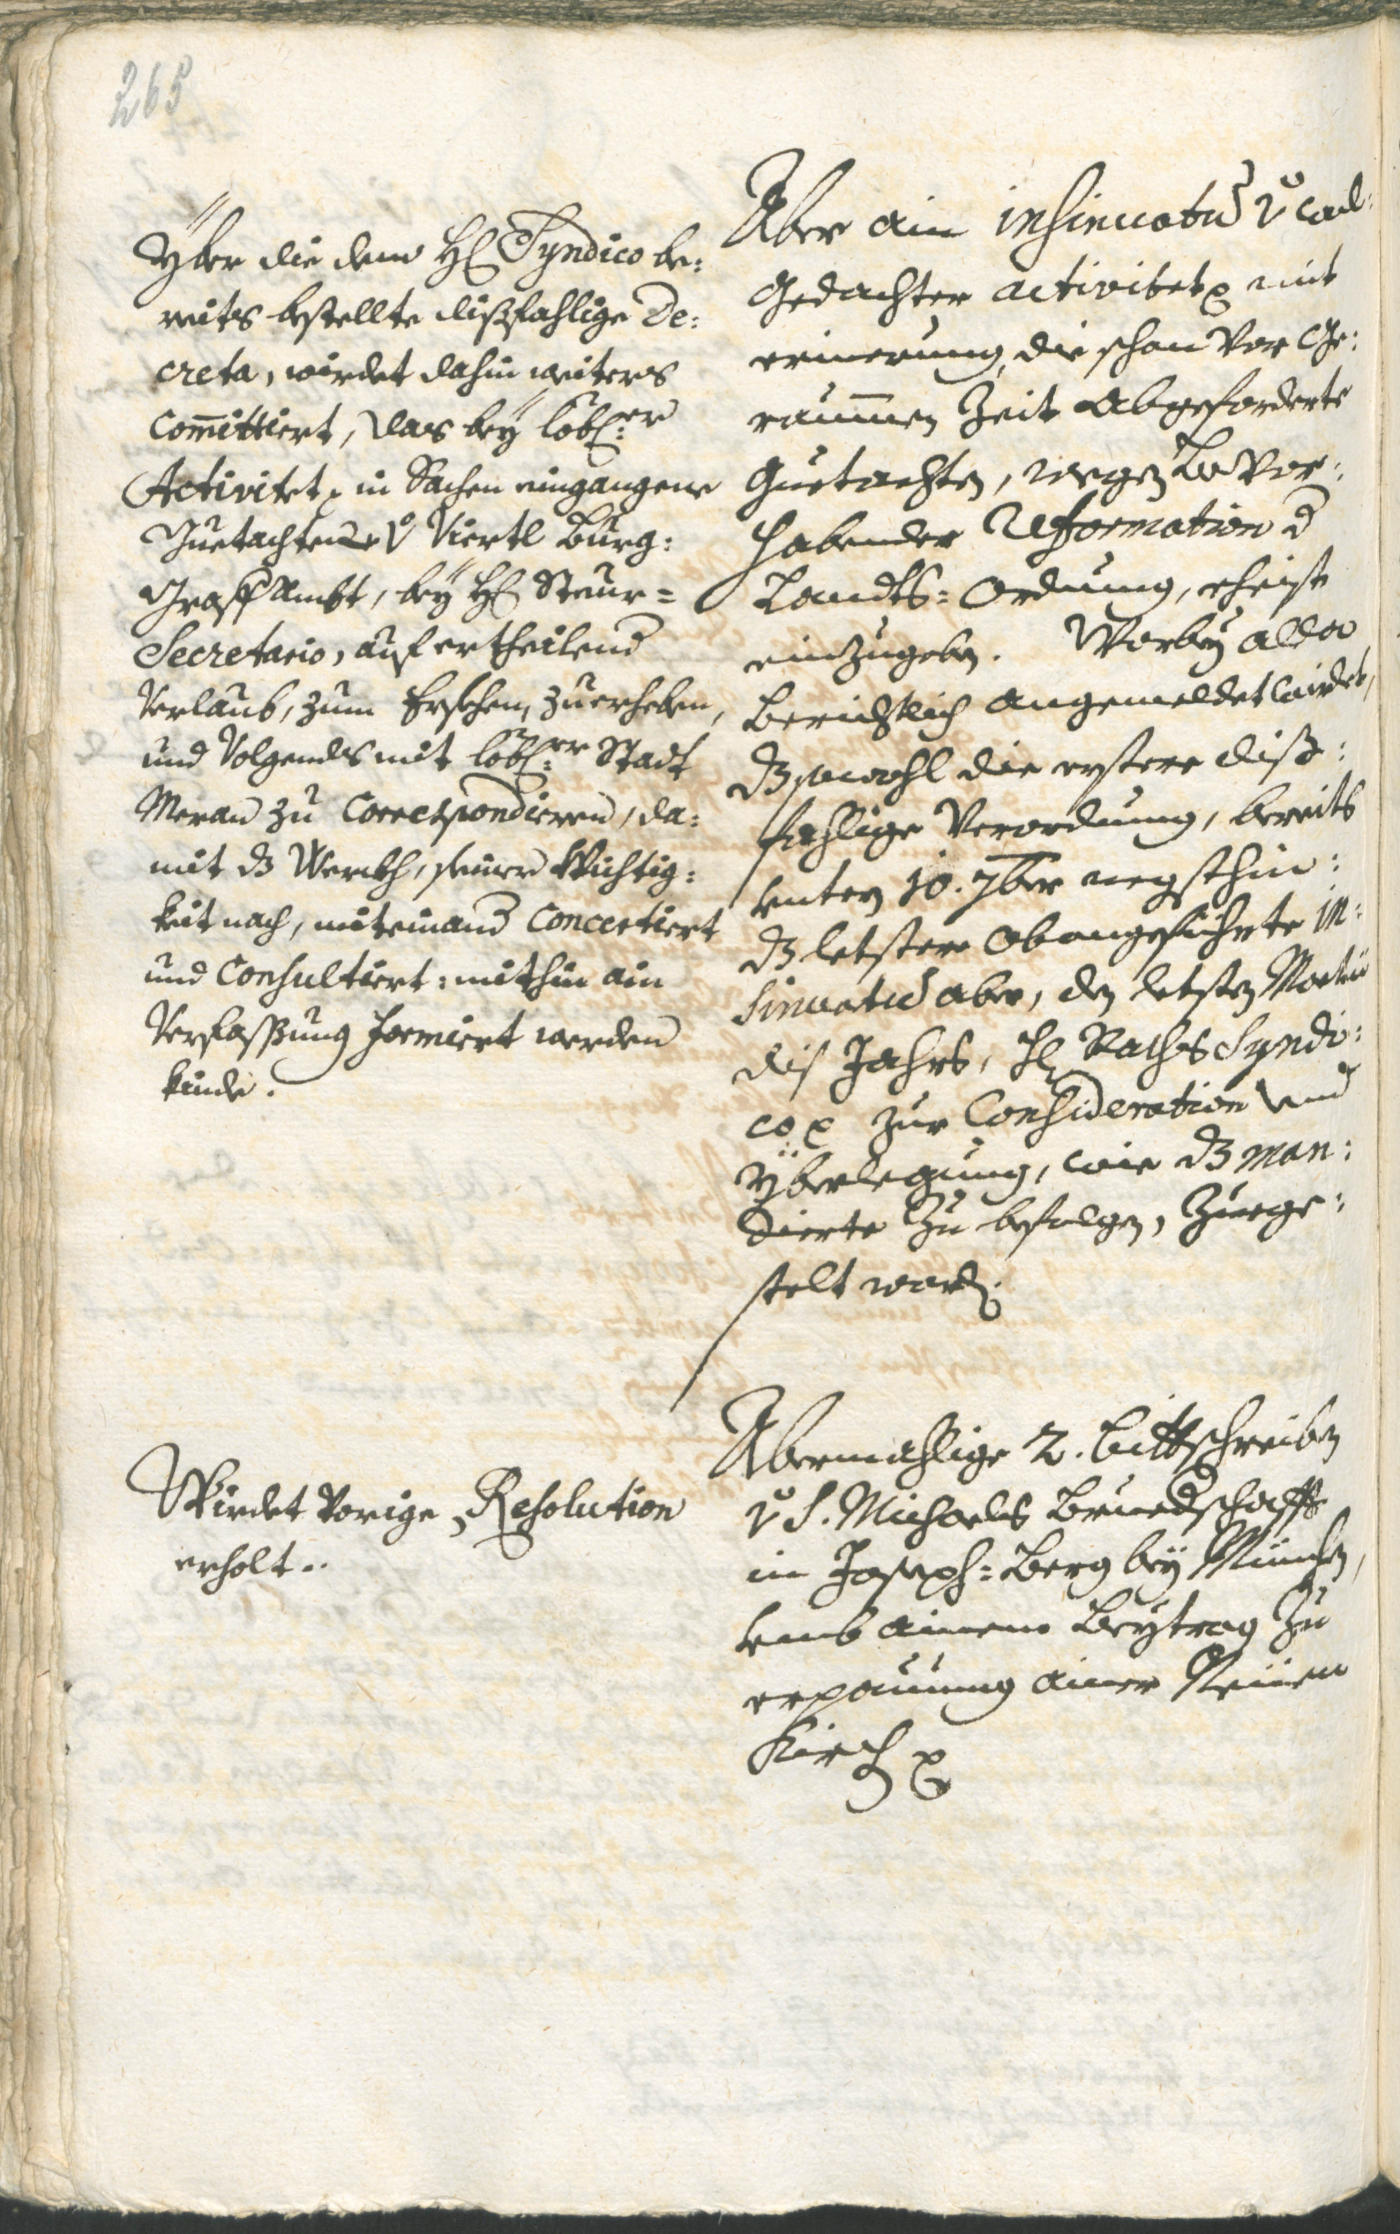 265
Yber die dem H Syndico be:
reits bestellte dißfahlige De:
creta, wirdet dahin weiters
Committiert, das bey löbl:er
Activitet, in Sachen eingangene
Guetachten v Viertl Burg:
Graff Ambt, bey H Steur=
Secretario, auf ertheilend
Verlaub, zum Ersehen, zuerheben,
und Volgendts mit löbl:er Statt
Meran zu Correspondieren, da:
mit dz Werckh, seiner Wichtig:
keit nach, miteinand Concertiert
und Consultiert: mithin ain
Verfassung formiert werden
künde.
Aber ain insinuatu v
Gedachter activitet mit
erinerung, die schon Vor Ge:
raumen Zeit Abgeforderte
Guetachten, wegen Bevor:
habender Reformation d
Landts=Ordnung, eheist
einzugeben. Worbey allda
Berichtlich angemeldet wirdet,
dz sowohl die erstere diß:
fahlige Verordnung, bereits
unter 10. 7ber negsthin:
dz letstere obangeführte in:
sinuatu aber, den letsten Martii
diß Jahrs, H Raths Syndi:
co zur Consideration und
Yberlegung, wie dz man:
dierte zu befolgen, zuege:
stelt worden.
Wirdet vorige Resolution
erholt..
Abermahlige 2. bittschreiben
v S. Michaels Bruedschafft
in Joseph=Berg bey München,
umb ainem Beytrag zu
erpauung ainer Neuen
Kirch